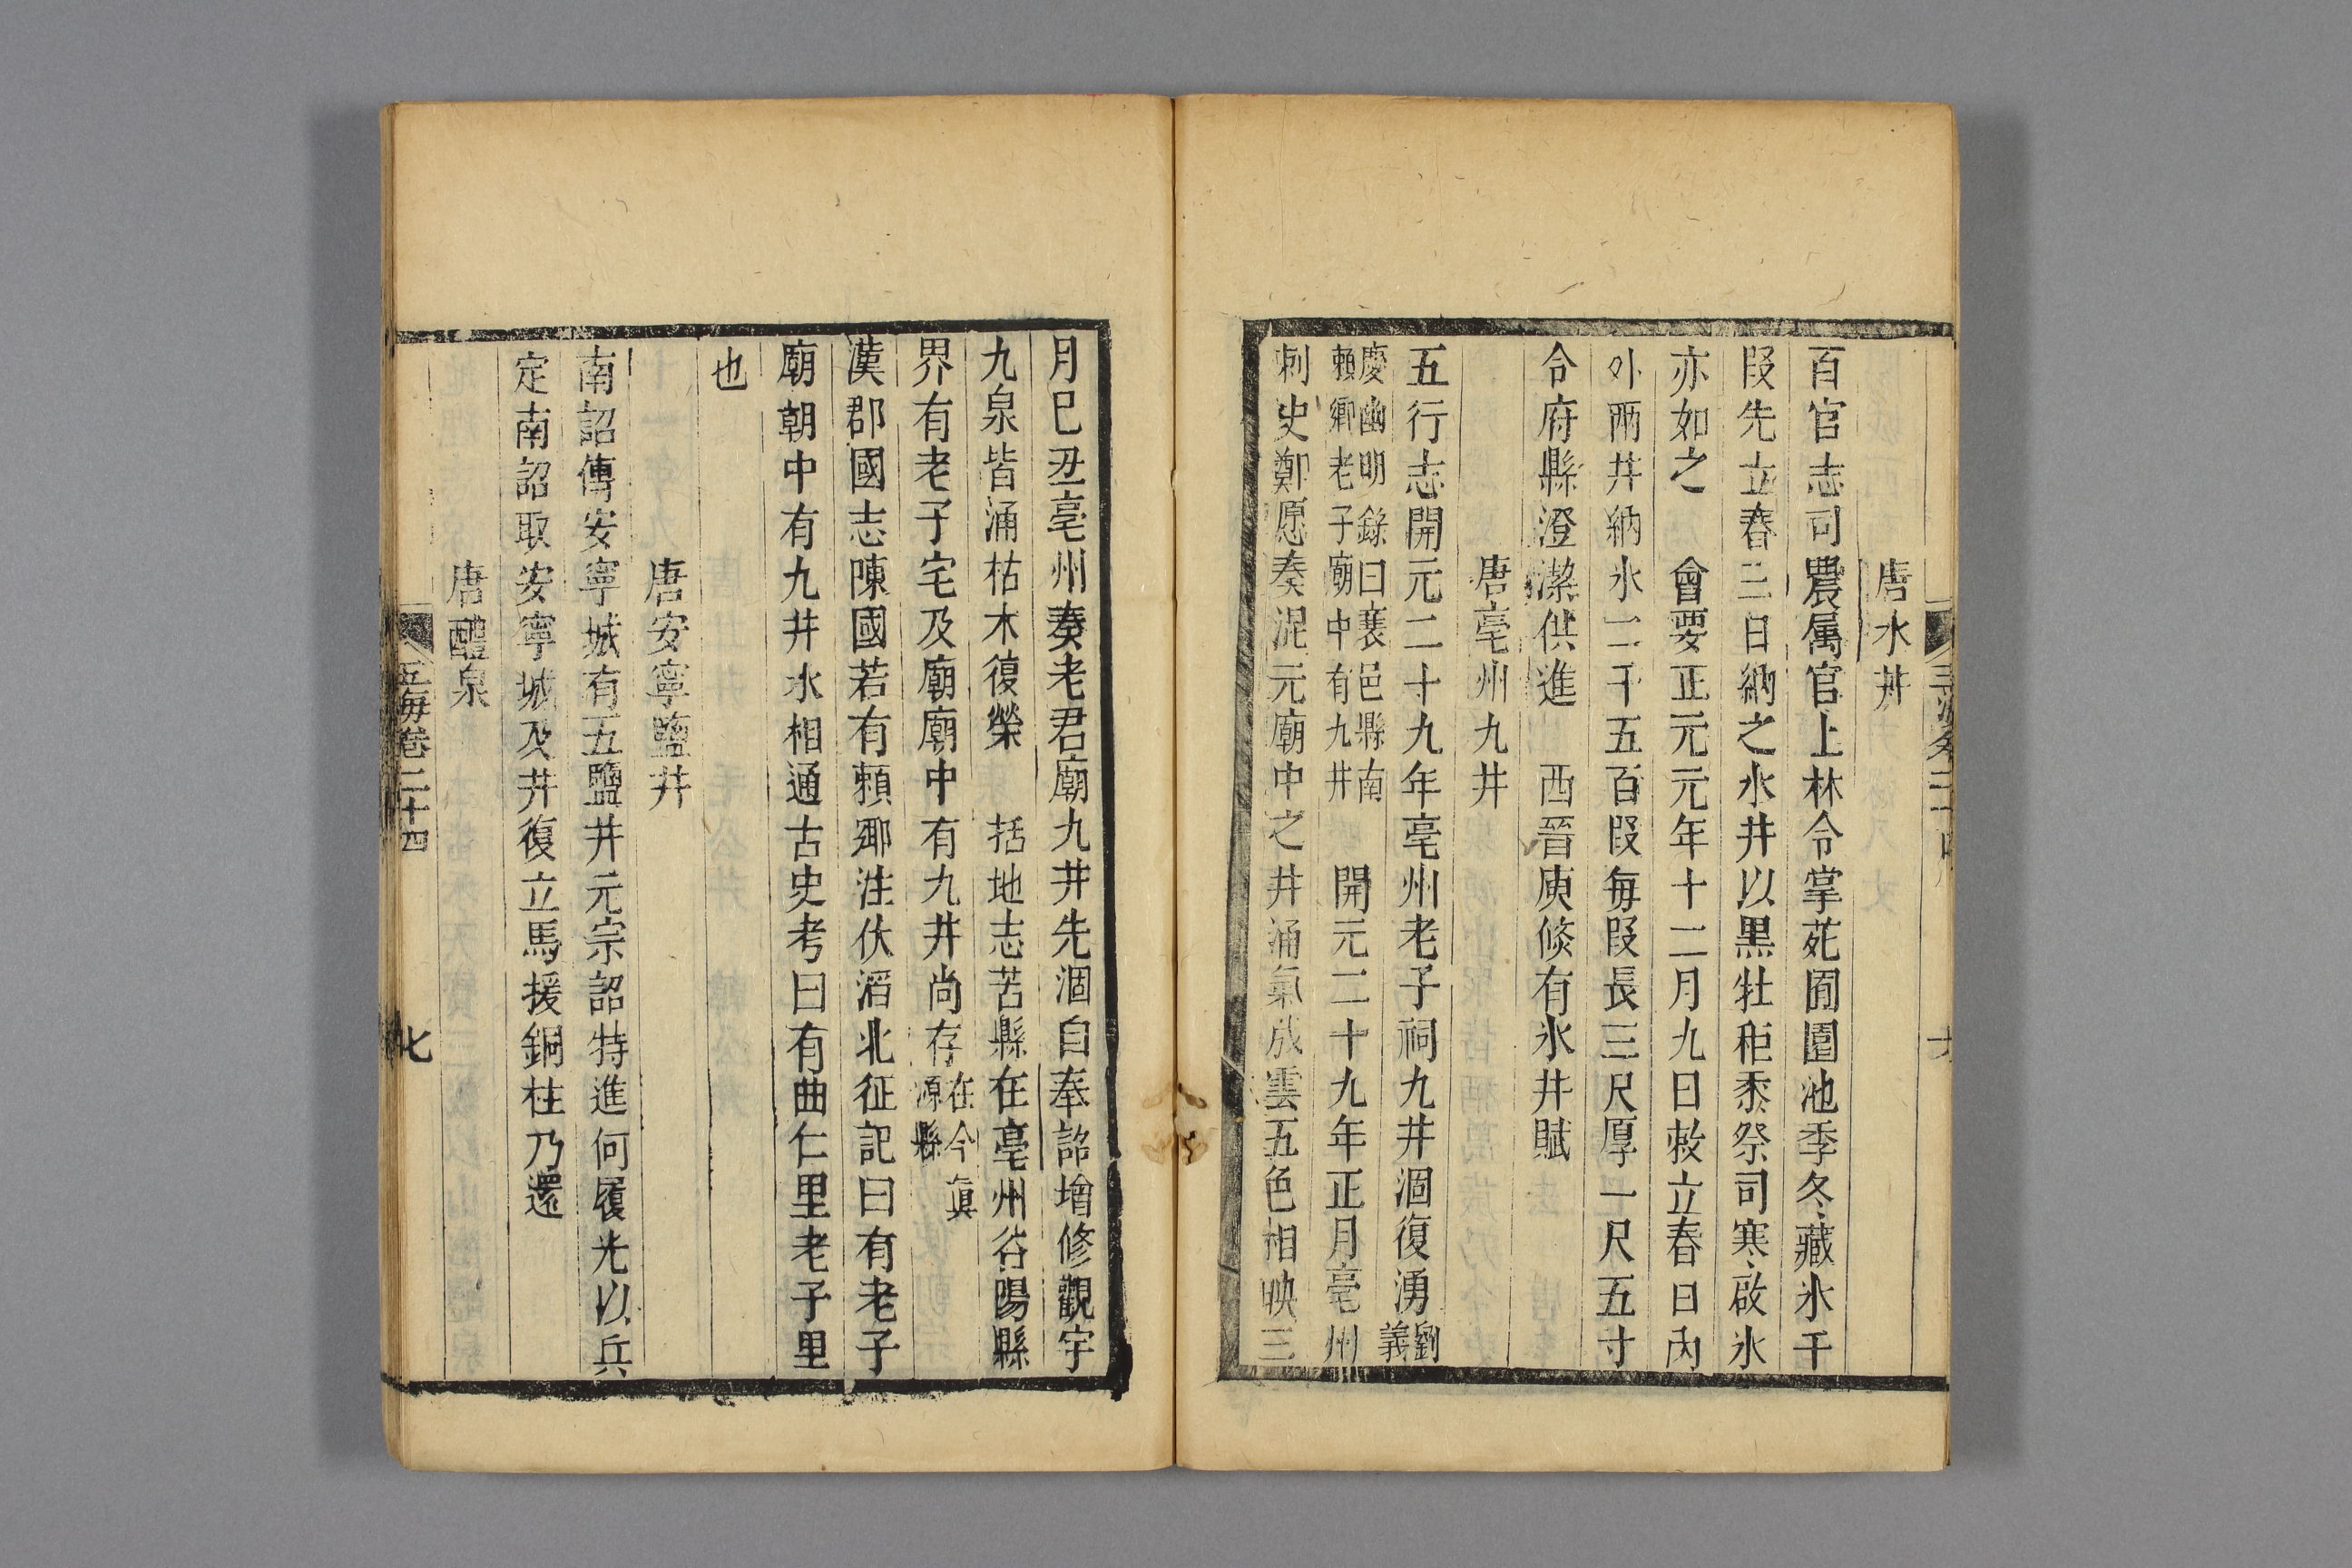 唐氷井
百官志司農属官上林令掌苑囿園池季冬藏氷千
段先立春三日納之氷井以黒牡秬黍祭司寒啟氷
亦如之　會要正元元年十二月九日敕立春日内
外兩井納氷二千五百段每段長三尺厚一尺五寸
令府縣澄潔供進　西晉庾儵有氷井賦
唐亳州九井
五行志開元二十九年亳州老子祠九井涸復湧劉
義
慶幽明錄曰襄邑縣南
賴卿老子廟中有九井　開元二十九年正月亳州
刺史鄭愿奏混元廟中之井涌氣成雲五色相映三
月巳丑亳州奏老君廟九井先涸自奉詔増修觀宇
九泉皆涌枯木復榮　括地志苦縣在亳州谷陽縣
界有老子宅及廟廟中有九井尚存在今真
源縣
漢郡國志陳國苦有賴鄉注伏滔北征記曰有老子
廟廟中有九井水相通古史考曰有曲仁里老子里
也
唐安寧鹽井
南詔傳安寧城有五鹽井元宗詔特進何履光以兵
定南詔取安寧城及井復立馬援銅柱乃還
唐醴泉
玉海卷二十四
七